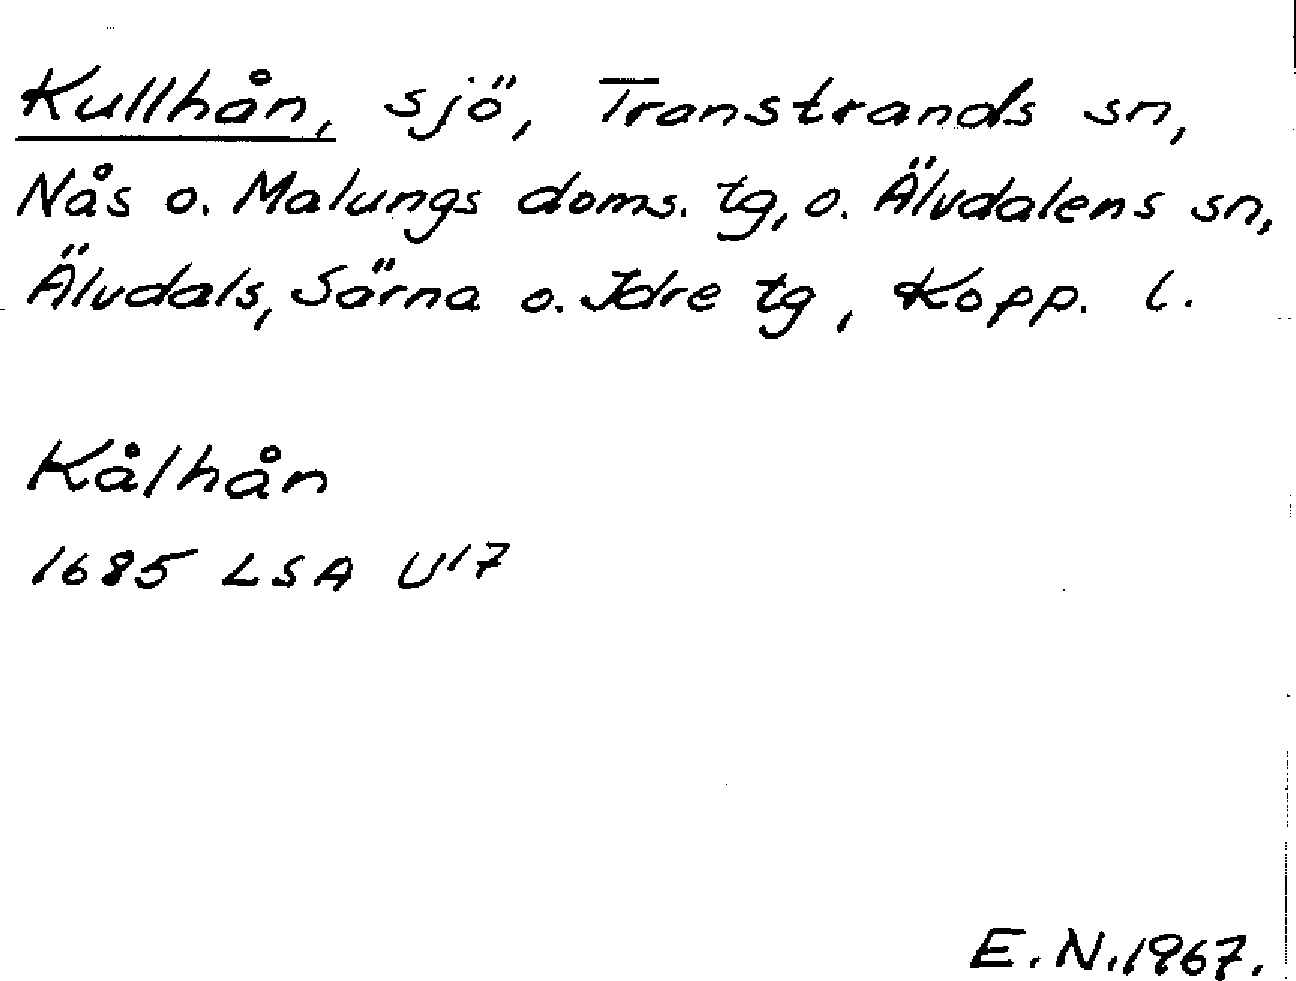 Kullhån, sjö, Transtrands sn,
Nås o. Malungs doms. tg, o. Älvdalens sn,
Älvdals, Särna o. Idre tg, Kopp. l.
Kålhån
1685 LSA U17
E.N. 1967.